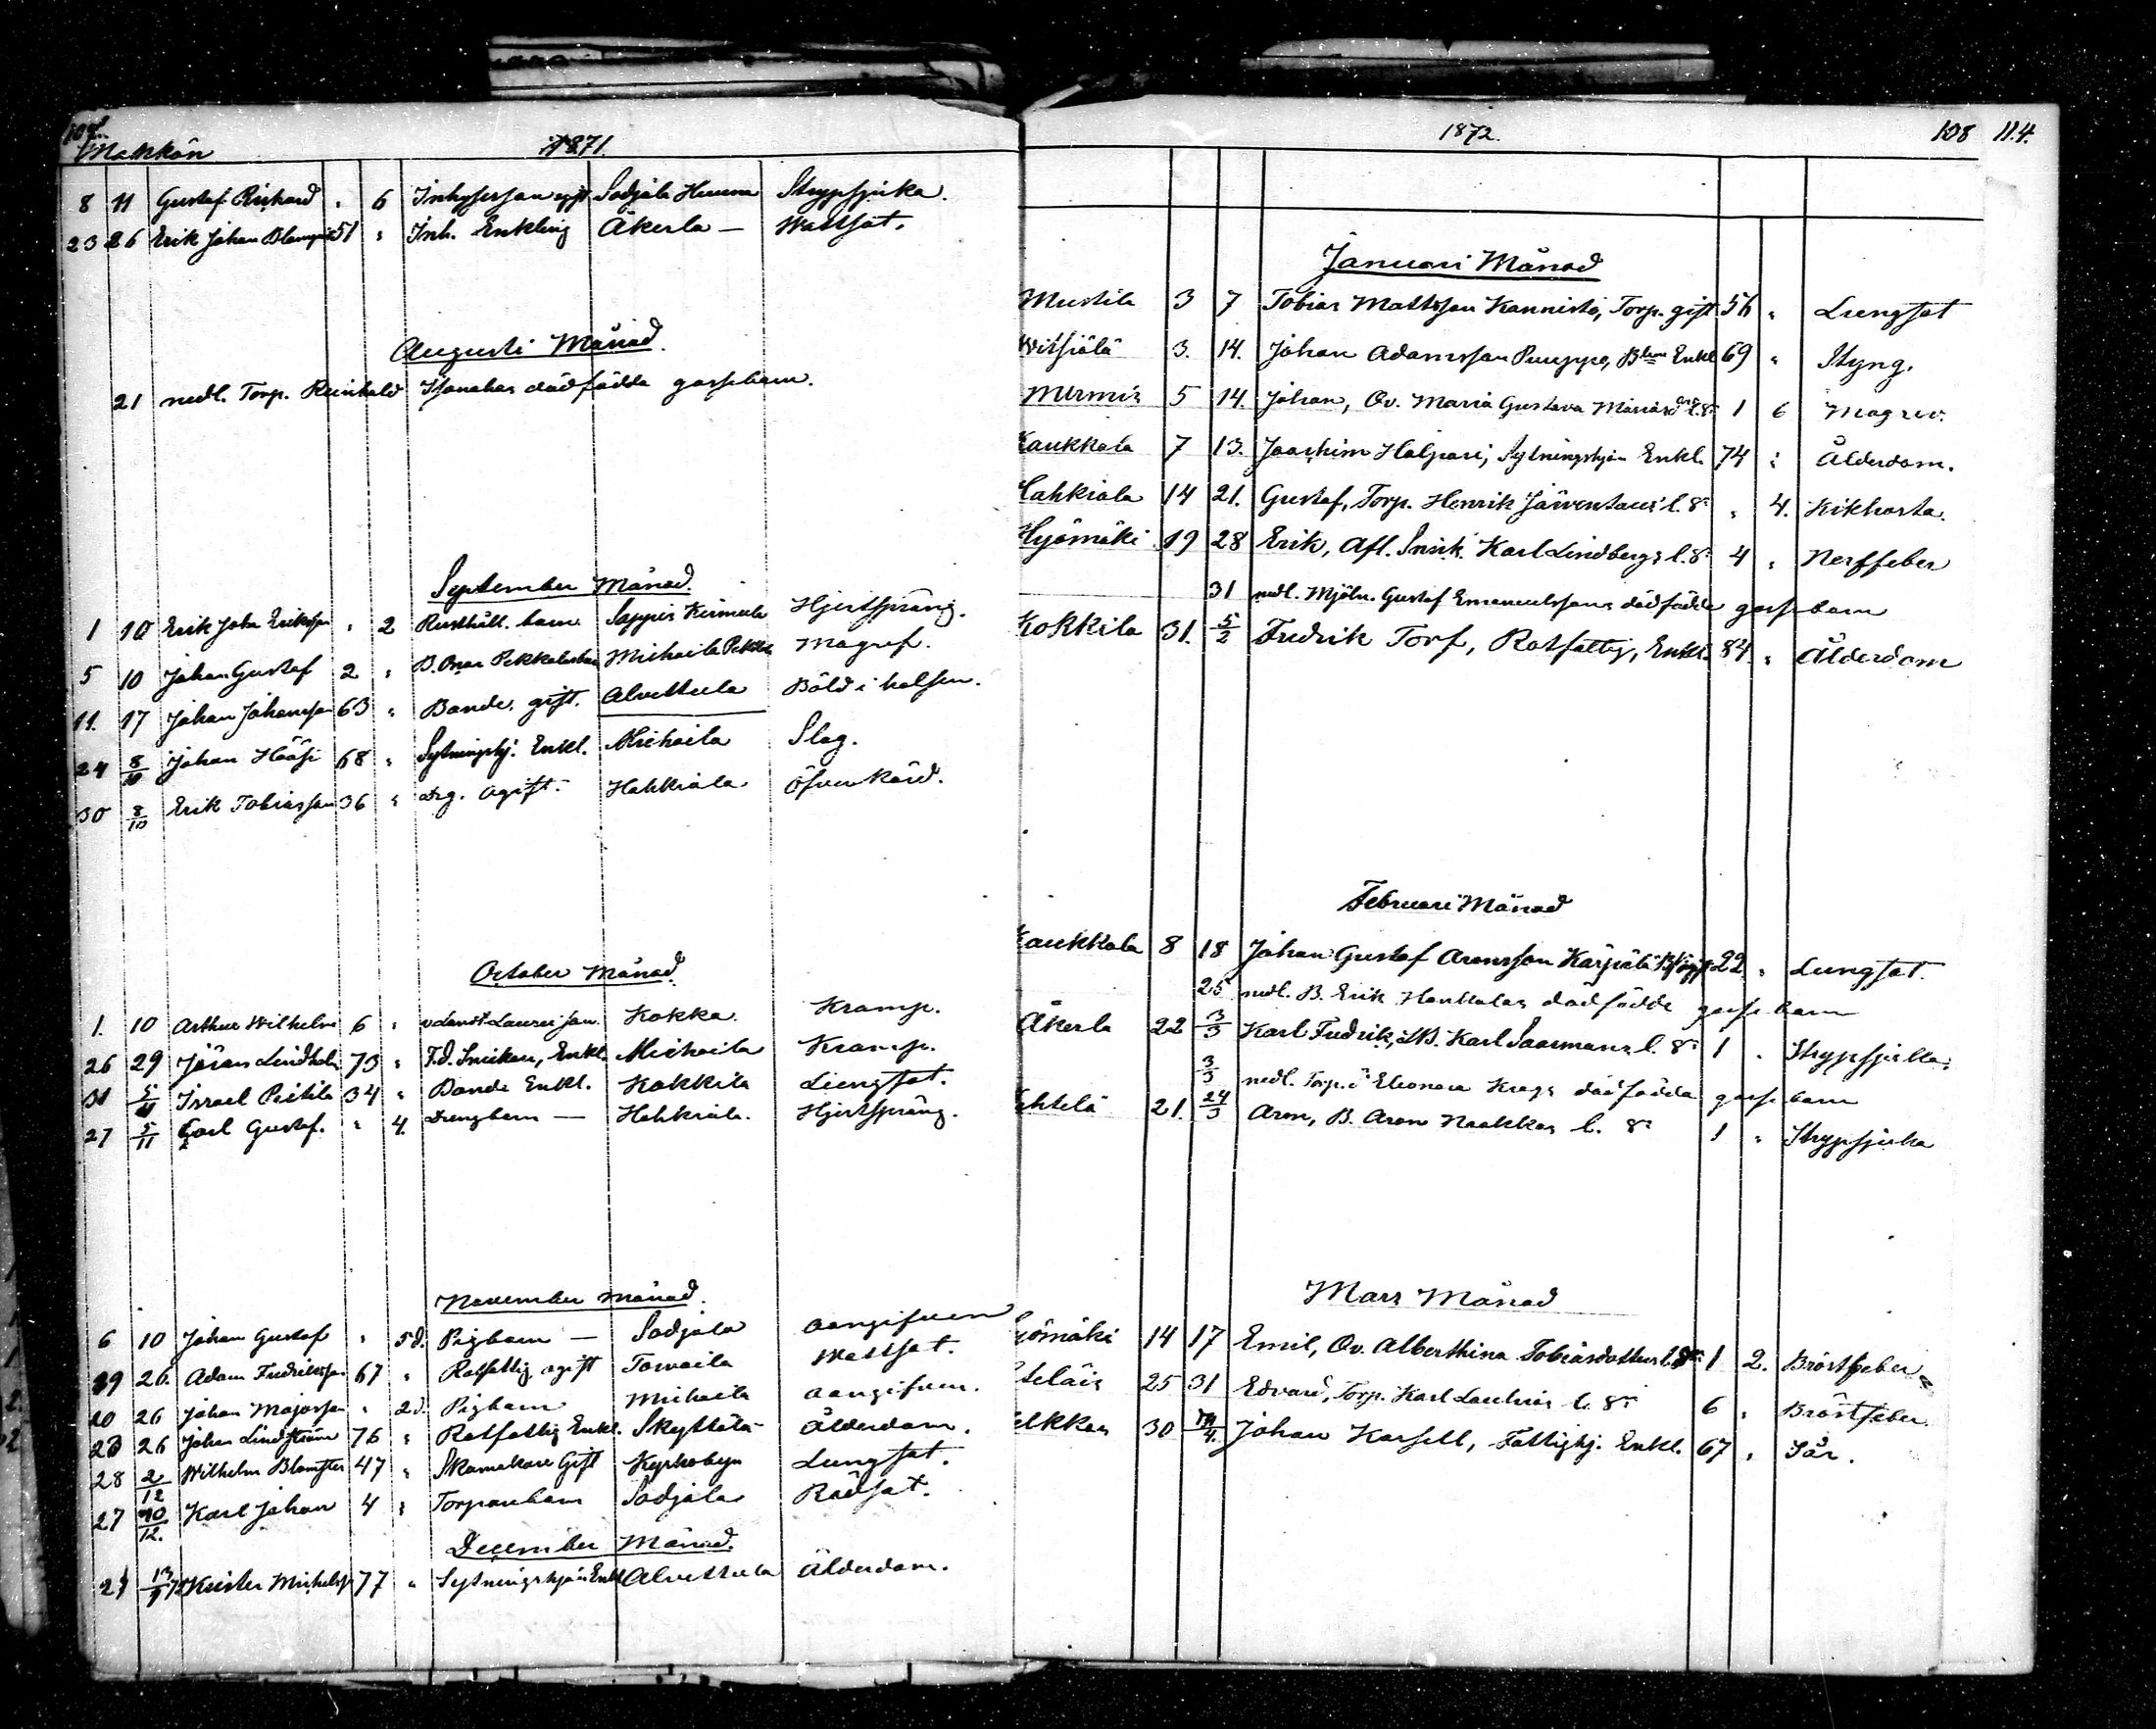 Mankön 1871.
8 11 Gustaf Richard " 6 Inhyserson Sadjala Strypsjuka.
23 26 Erik Johan 51 " Inh. Enkling Äkerla — Wattsot.
Augusti Månad.
21 nedl. Torp. Reinhold dödfödda gossebarn.
September Månad.
1 10 Erik Joha Eriksson " 2 Rusthåll. barn Sappis Hjertsprång.
5 10 Johan Gustaf 2 " Michaila Magref.
11. 17 Johan Johansson 63 " Bonde. gift. Alvettula Böld i halsen.
24 8/10 Johan Hääsi 68 " Sytningshj. Enkl. Michaila Slag.
30 8/10 Erik Tobiasson 36 " Drg. ogift. Hahkiala
October Månad.
1. 10 Arthur Wilhelm 6 " Kokka. Kramp.
26 29 Jöran Lindholm 73 " F.d. Snickare, Enkl. Michaila Kramp.
31 5/11 Israel Peitila 34 " Bonde Enkl. Kokkila Lungsot.
27 5/11 Carl Gustaf. " 4. Drengbarn — Hahkiala. Hjertsprång.
November Månad.
6 10 Johan Gustaf " 5 d. Pigbarn — Sadjala oangifven
19 26. Adam Fredriksson 67 " Rotfattig ogift Towaila Wattsot.
20 26 Johan Majasson " 2 d. Pigbarn Michaila oangifven.
23 26 Johan Lindström 76 " Rotfattig Enkl. Skyttälä Ålderdom.
28 2/12 Wilhelm Blomster 47 " Skomakare Gift Kyrkobyn Lungsot.
27 10/12. Karl Johan 4 " Torparebarn Sadjala Rödsot.
December Månad.
Michelss 77 " Sytningshjon Enkl Alvettula Ålderdom.
1872. 108 114.
Januari Månad
Mustila 3 7 Tobias Mattsson Kannisto, Torp. gift 56 " Lungsot
Witsiälä 3. 14. Johan Adamsson Enkl 69 " Styng.
5 14. Johan, Qv. Maria Gustava 1 6 Magrev.
Kaukkala 7 13. Joachim Halpari, Sytningshjon Enkl. 74 " Ålderdom.
Hahkiala 14 21. Gustaf, Torp. Henrik l. 8n " 4. Kikhosta.
Hyömäki 19 28 Erik, Afl. Snick. Karl Lindbergs l. 8n 4 " Nerffeber
31 nedl. Mjöln. Gustaf Emanuelssons dödfödde gossebarn
Kokkila 31. 5/2 Fredrik Torf, Rotfattig, Enkl. 84 " Ålderdom
Februari Månad
Kaukkala 8 18 Johan Gustaf Aronsson Kärpälä 22 " Lungsot.
25 nedl. B. Erik Hankalas dödfödde gosse barn
Äkerla 22 3/3 Karl Fredrik, Karl Saarmans l. 8n 1 " Strypsjuka
3/3 nedl. Eleonora Krags dödfödda gosse barn
21. 24/3 Aron, B. Aron Naakkas l. 8n 1 " Strypsjuka
Mars Månad
yömäki 14 17 Emil, Qv. Alberthina Tobiasdotters 1 2. Bröstfeber
teläis 25 31 Edvard, Torp. Karl l. 8n 6 " Bröstfeber
elkkas 30 Johan Karsell, Fattighj. Enkl. 67 " Sår.